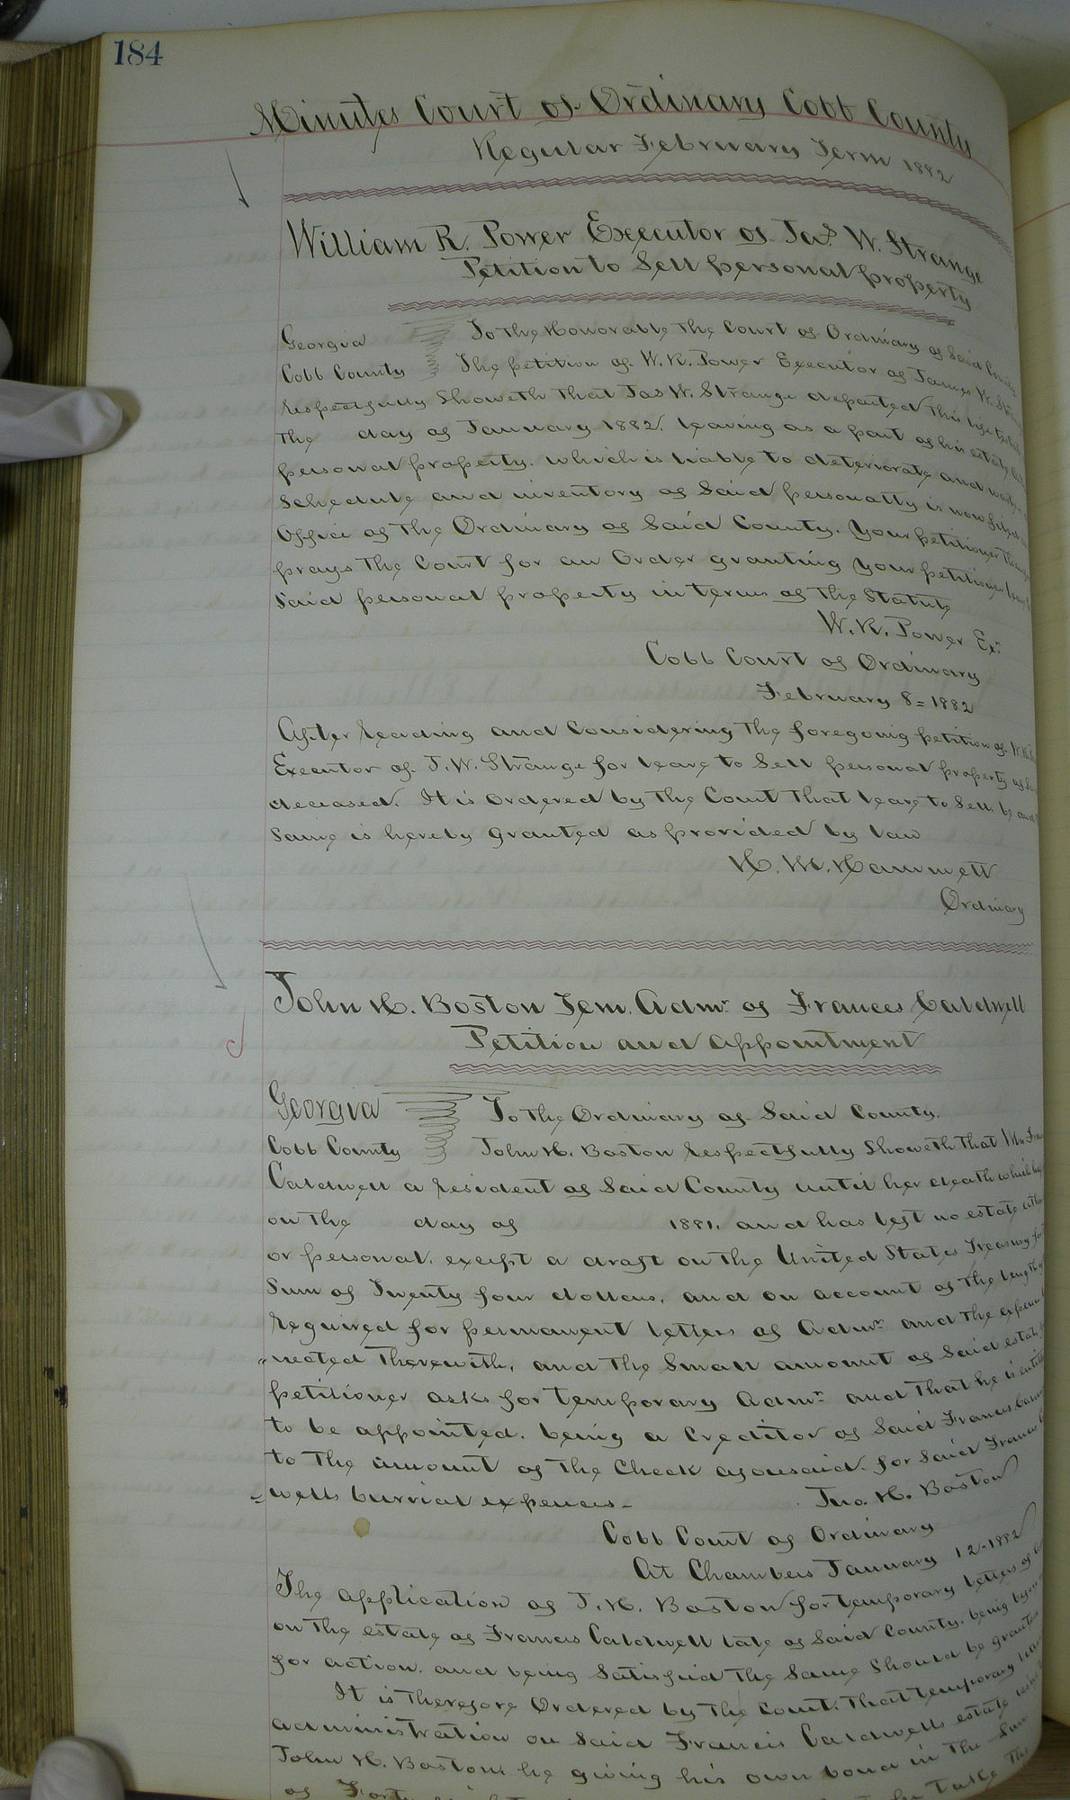 184
Minutes Court of Ordinary Cobb County
Regular February Term 1882
William R. Power Executor of Jas. W. Strange
Petition to Sell personal property
Georgia To the Honorable the Court of Ordinary of Said County
Cobb County The petition of W. R. Power Executor of James W.
respectfully Showeth that Jas W. Strange departed this life
the day of January 1882, leaving as a part of his estate
personal property, which is liable to deteriorate and
Schedule and inventory of Said personalty is now filed
Office of the Ordinary of Said County. Your petitioner
prays the Court for an Order granting your petitioner
Said personal property in terms of the Statute
W. R. Power Exr.
Cobb Court of Ordinary
February 8 = 1882
After reading and Considering the foregoing petition of
Executor of J. W. Strange for leave to Sell personal property of
deceased. It is ordered by the Court that leave to Sell be and
Same is hereby granted as provided by law
H. M. Hammett
Ordinary
John H. Boston Tem. Admr. of Frances Caldwell
Petition and appointment
Georgia To the Ordinary of Said County.
Cobb County John H. Boston respectfully Showeth that
Caldwell a resident of Said County until her death which
on the day of 1881, and has left no estate
or personal, except a draft on the United States Treasury for
Sum of Twenty four dollars, and on account of the length
required for permanent letters of Admr. and the
nected therewith, and the Small amount of Said estate
petitioner asks for temporary Admr. and that he is
to be appointed, being a Creditor of Said Frances
to the amount of the Check aforesaid for Said
wells burrial expences -
Jno. H. Boston
Cobb Court of Ordinary
At Chambers January 12 - 1882
The application of J. H. Boston for temporary letters of
on the estate of Francis Caldwell late of Said County, being
for action, and being Satisfied the Same Should be
It is therefore Ordered by the Court, that temporary
administration on Said Francis Caldwells estate
John H. Boston he giving his own bond in the
of take the